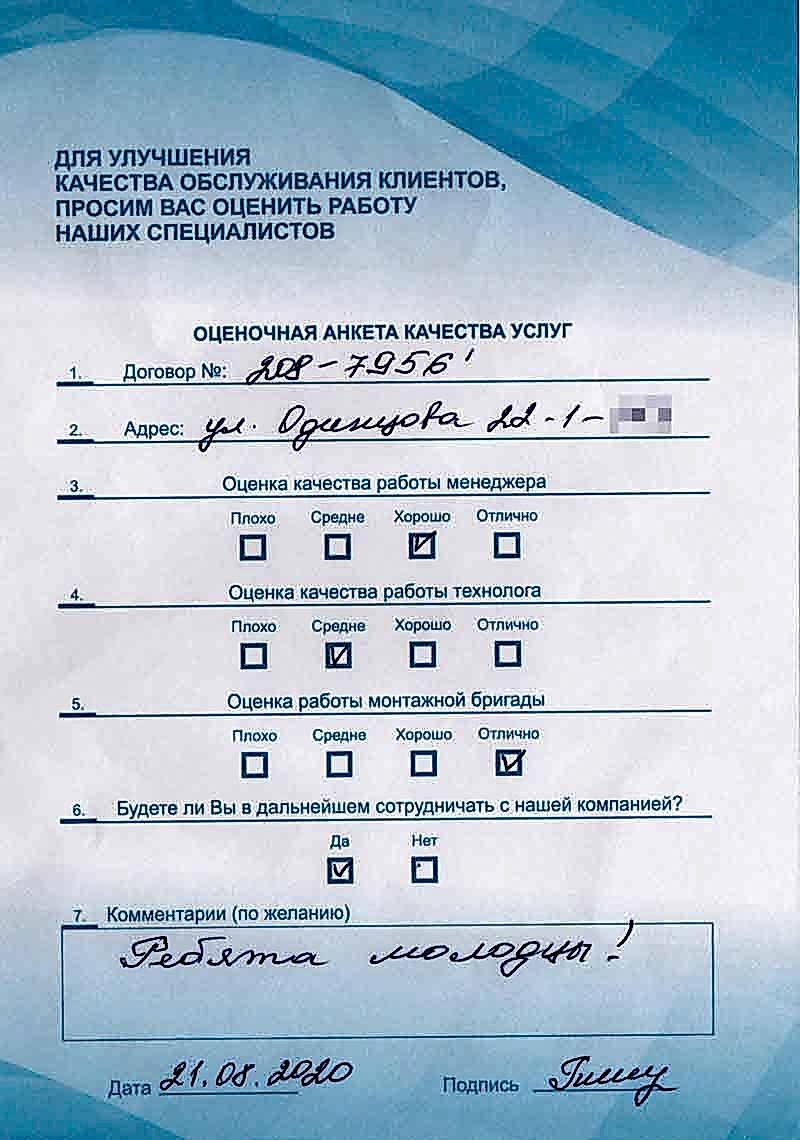 ДЛЯ УЛУЧШЕНИЯ
КАЧЕСТВА ОБСЛУЖИВАНИЯ КЛИЕНТОВ,
ПРОСИМ ВАС ОЦЕНИТЬ РАБОТУ
НАШИХ СПЕЦИАЛИСТОВ
ОЦЕНОЧНАЯ АНКЕТА КАЧЕСТВА УСЛУГ
1. Договор №: 208-7956
2. Адрес: ул. Одинцова 22-1-
3. Оценка качества работы менеджера
Плохо Средне Хорошо Отлично
4. Оценка качества работы технолога
Плохо Средне Хорошо Отлично
5. Оценка работы монтажной бригады
Плохо Средне Хорошо Отлично
6. Будете ли Вы в дальнейшем сотрудничать с нашей компанией?
Да Нет
7. Комментарии (по желанию)
Ребята молодцы!
Дата 21.08.2020 Подпись